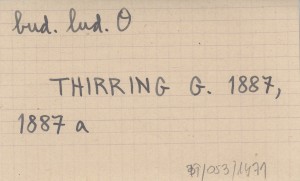 bud. lud. O
THIRRING G. 1887,
1887 a
79/053/1471